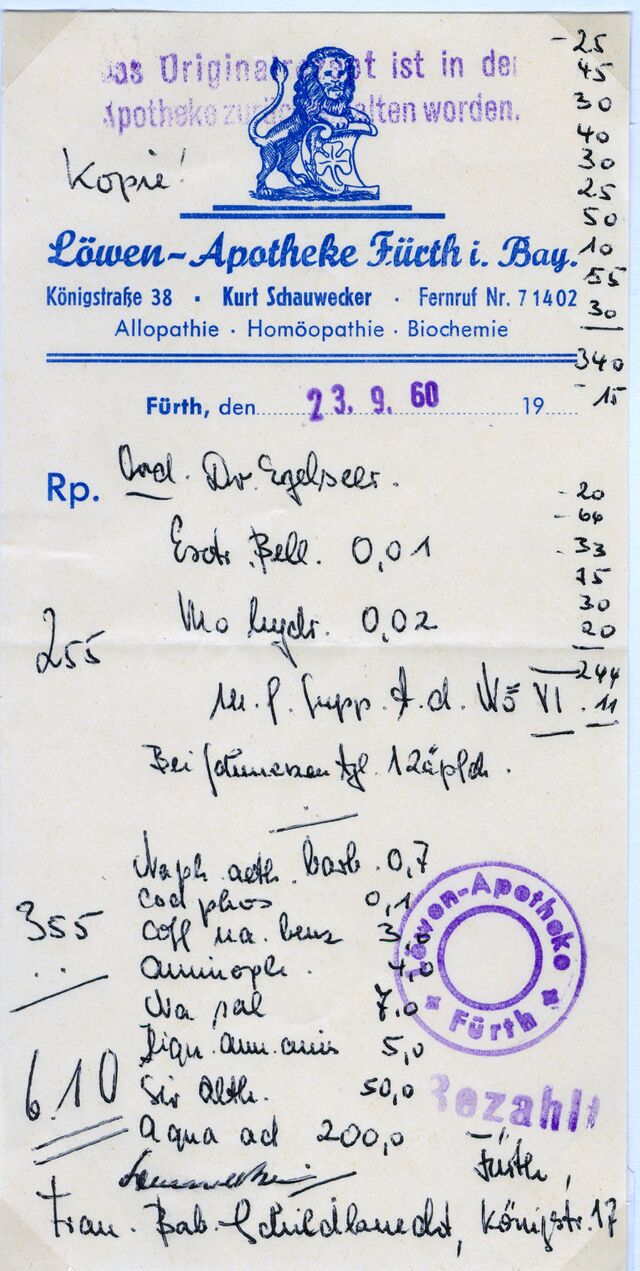 Das Originalrezept ist in der
Apotheke zurückbehalten worden.
Kopie!
Löwen-Apotheke Fürth i. Bay.
Königstraße 38 · Kurt Schauwecker · Fernruf Nr. 71402
Allopathie · Homöopathie · Biochemie
- 25
45
30
40
30
25
50
10
55
30
340
- 15
Fürth, den 23. 9. 60 19
Rp. Ord. Dr. Egelseer.
- 20
- 66
- 33
75
30
20
244
. 11
Extr. Bell. 0,01
hydr. 0,02
255
m. f. Supp. t. d. VI
Bei Schmerzen tgl. 1 Zäpfch.
aeth. barb. 0,7
Cod phos 0,1
355
Coff na. benz 3,0
Aminoph. 4,0
Na sal 7,0
Liqu. amm. anis 5,0
610
Sir Alth. 50,0
Aqua ad 200,0
Löwen-Apotheke
Fürth
Bezahlt
Schauwecker
Fürth,
Frau. Bab. Schildknecht, Königstr. 17